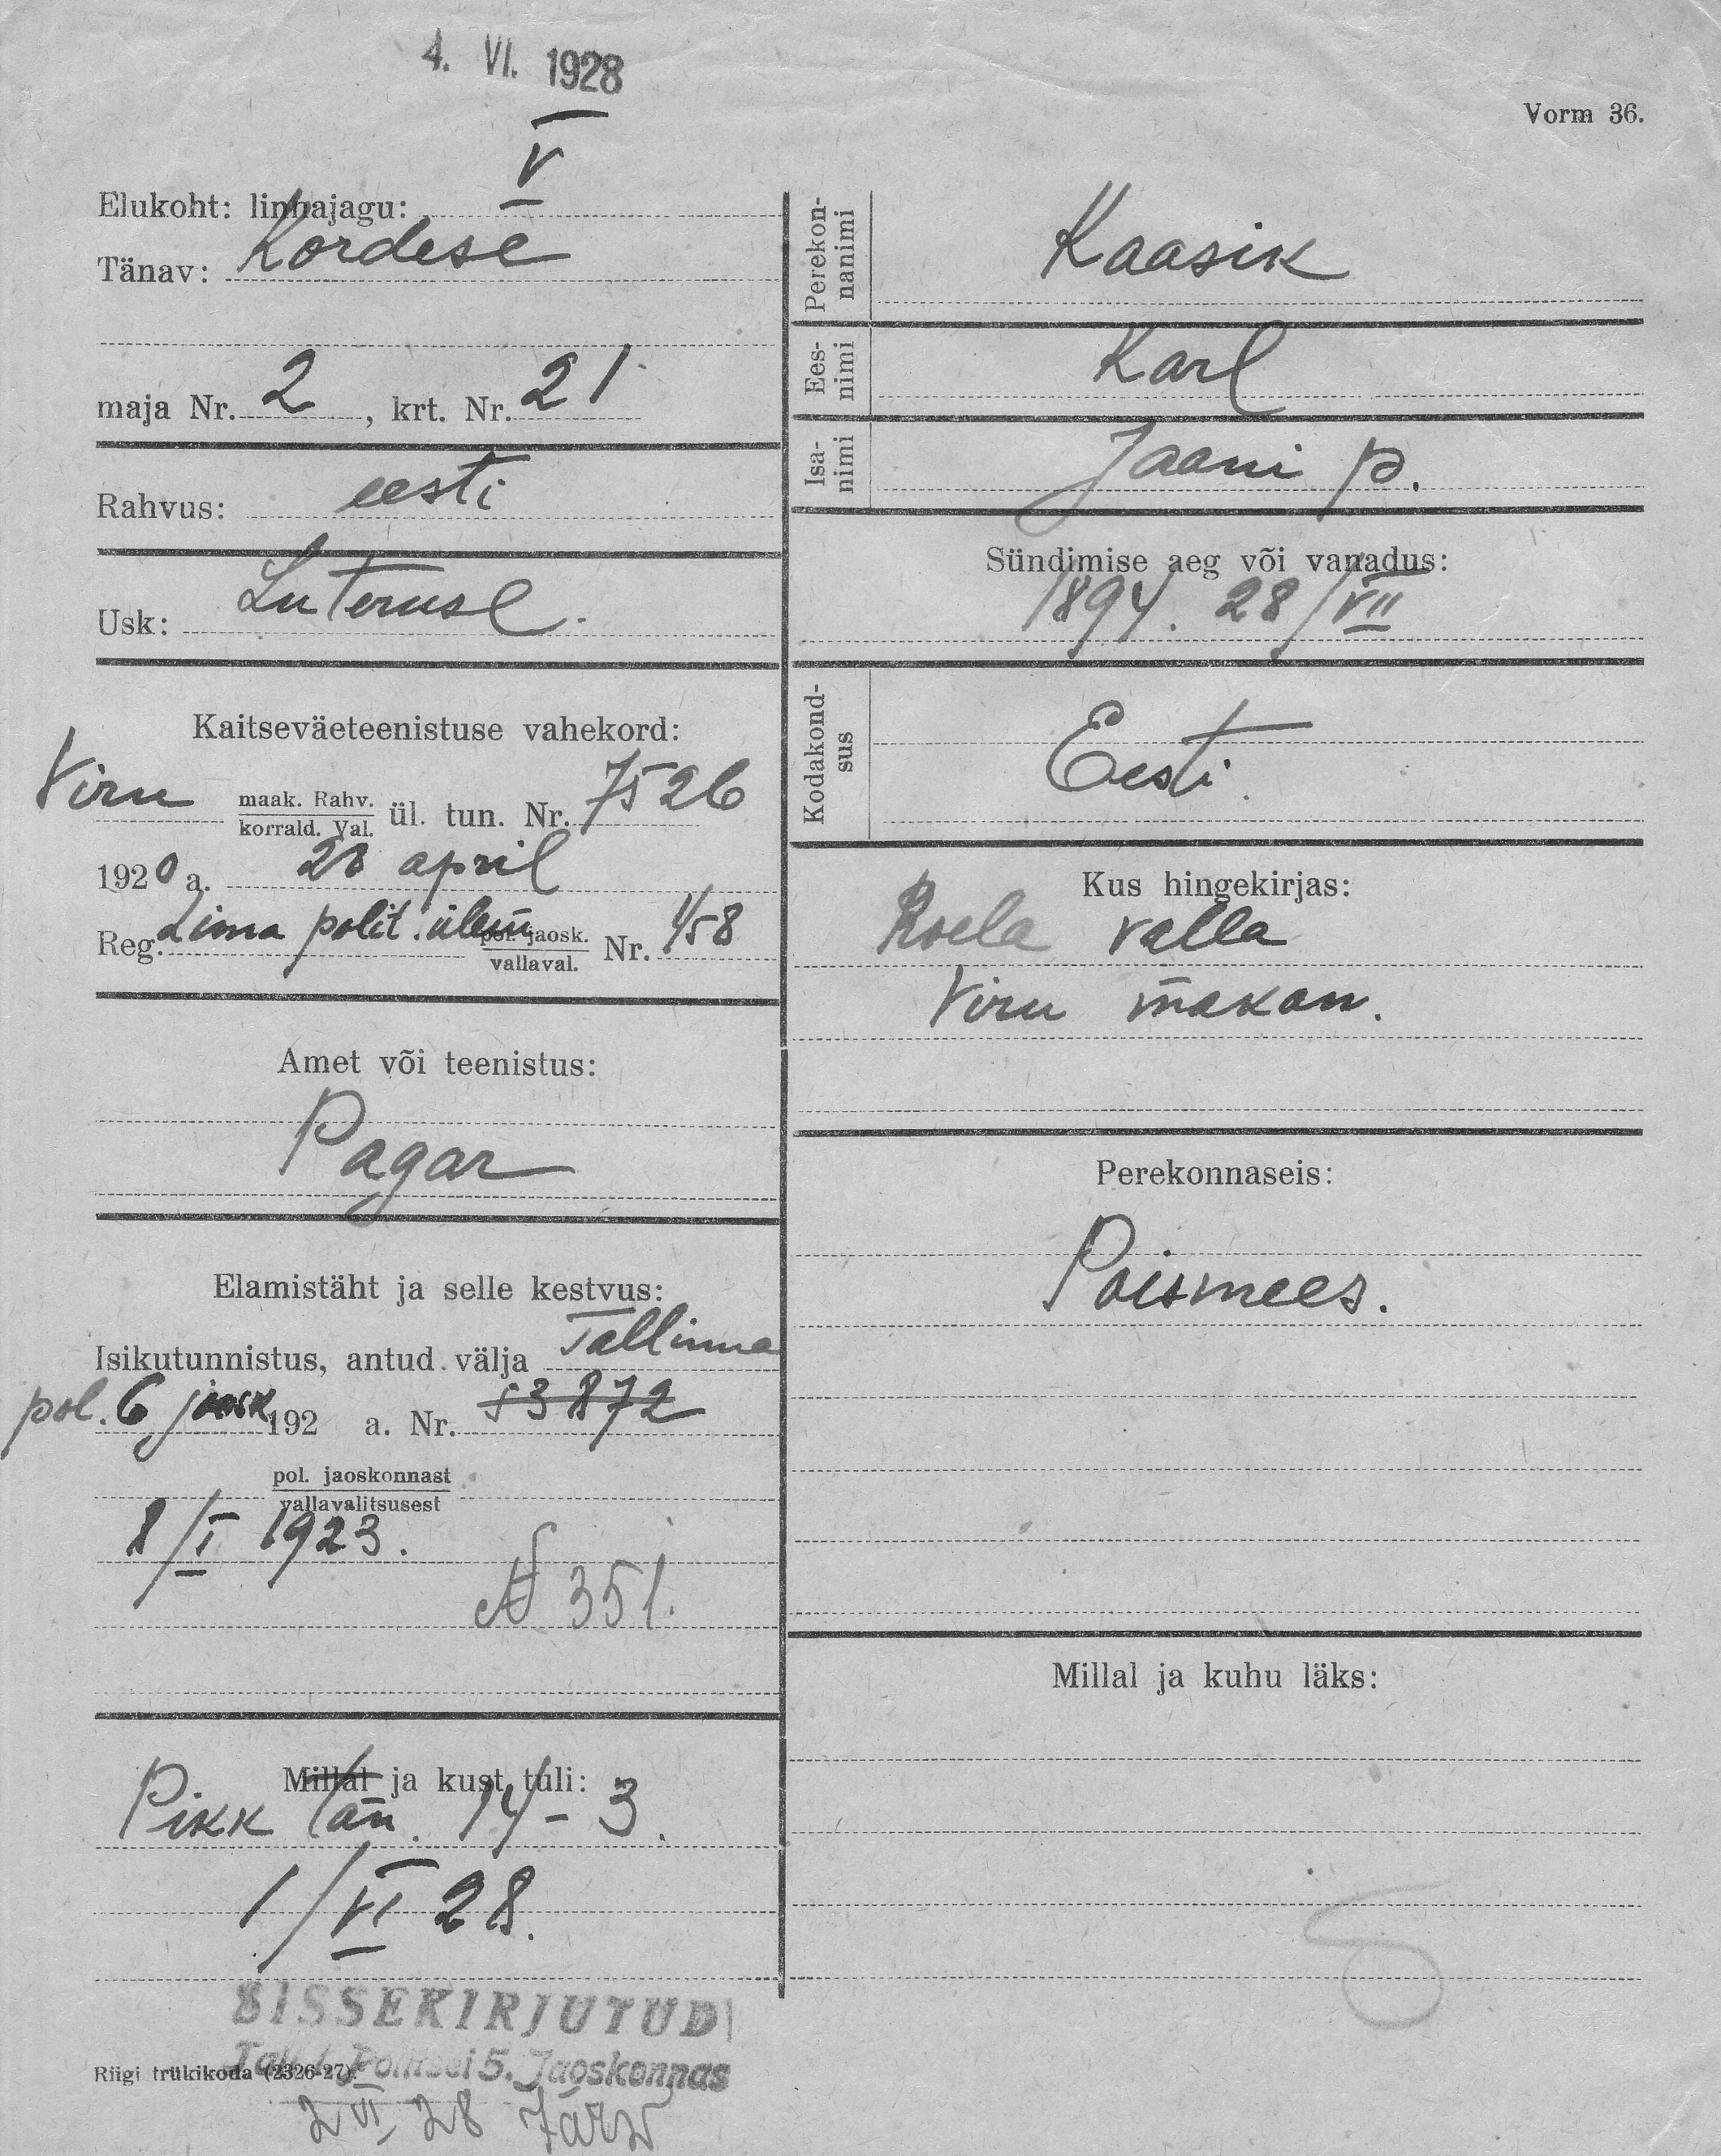 4. VI. 1928
Vorm 36.
V
Elukoht: linnajagu:
Tänav: Kordese
maja Nr. 2, krt. Nr. 21
Rahvus: eesti
Usk: Luterusl.
Kaitseväeteenistuse vahekord:
Viru maak. Rahv. korrald. Val. ül. tun. Nr. 7526
1920 a. 20 april
Reg. Linna polit. ülem pol. jaosk. vallaval. Nr. 1/58
Amet või teenistus:
Pagar
Elamistäht ja selle kestvus:
Isikutunnistus, antud välja Tallinna
pol. 6 jaosk 192 a. Nr. 53872
pol. jaoskonnast
vallavalitsusest
8/I 1923.
№ 351.
Millal ja kust tuli:
Pikk tän. 14-3.
1/VI 28.
SISSEKIRJUTUD
Politsei 5. Jaoskonnas
Riigi trükikoda (2326-27).
2 VI 28 Järw
Perekon-
nanimi
Kaasik
Ees-
nimi
Karl
Isa-
nimi
Jaani p.
Sündimise aeg või vanadus:
1894. 28/VII
Kodakond-
sus
Eesti.
Kus hingekirjas:
Roela valla
Viru makon.
Perekonnaseis:
Poismees.
Millal ja kuhu läks: